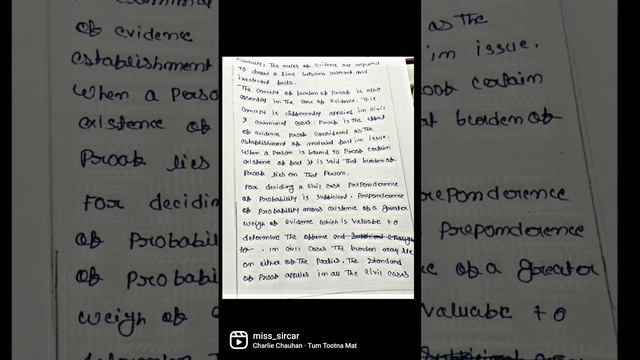 The rules of evidence are required
to draw a line between relevant and
irrelevant facts.
The concept of burden of Proof is also
essential in the case of Evidence. This
concept is differently applied in Civil
& criminal cases. Proof is the effect
of evidence Proof considered as the
establishment of material fact in issue.
when a Person is bound to Proof certain
existence of fact it is said That burden of
Proof lies on That Person.
For deciding a Civil case Preponderence
of Probability is sufficient. Preponderence
of Probability means existence of a greater
weigh of evidence which is valuabe to
determine The and
to. in civil cases The burden may lie
on either of The Parties. The standard
of Proof applies in all The Civil cases
of evidence
establishment
when a Perso
existence of
Proof lies
For decidin
of Probabil
of Probabi
weigh of
as the
in issue.
certain
burden of
reponderence
Preponderence
of a greater
valuabe to
miss_sircar
Charlie Chauhan · Tum Tootna Mat